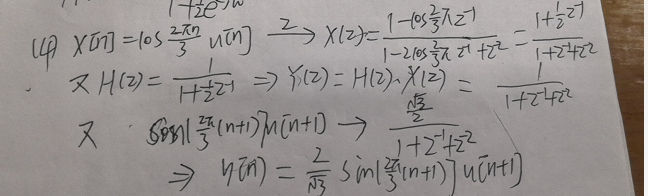 1+½e^-jω
(4) x[n]=cos 2πn/3 u[n] —Z→ X(z)= (1-cos 2/3 π z⁻¹)/(1-2cos 2/3 π z⁻¹+z⁻²) = (1+½z⁻¹)/(1+z⁻¹+z⁻²)
又 H(z)= 1/(1+½z⁻¹) ⇒ Y(z)=H(z)·X(z) = 1/(1+z⁻¹+z⁻²)
又 sin[2π/3 (n+1)]u[n+1] → (√3/2)/(1+z⁻¹+z⁻²)
⇒ y[n] = 2/√3 sin[2π/3 (n+1)] u[n+1]